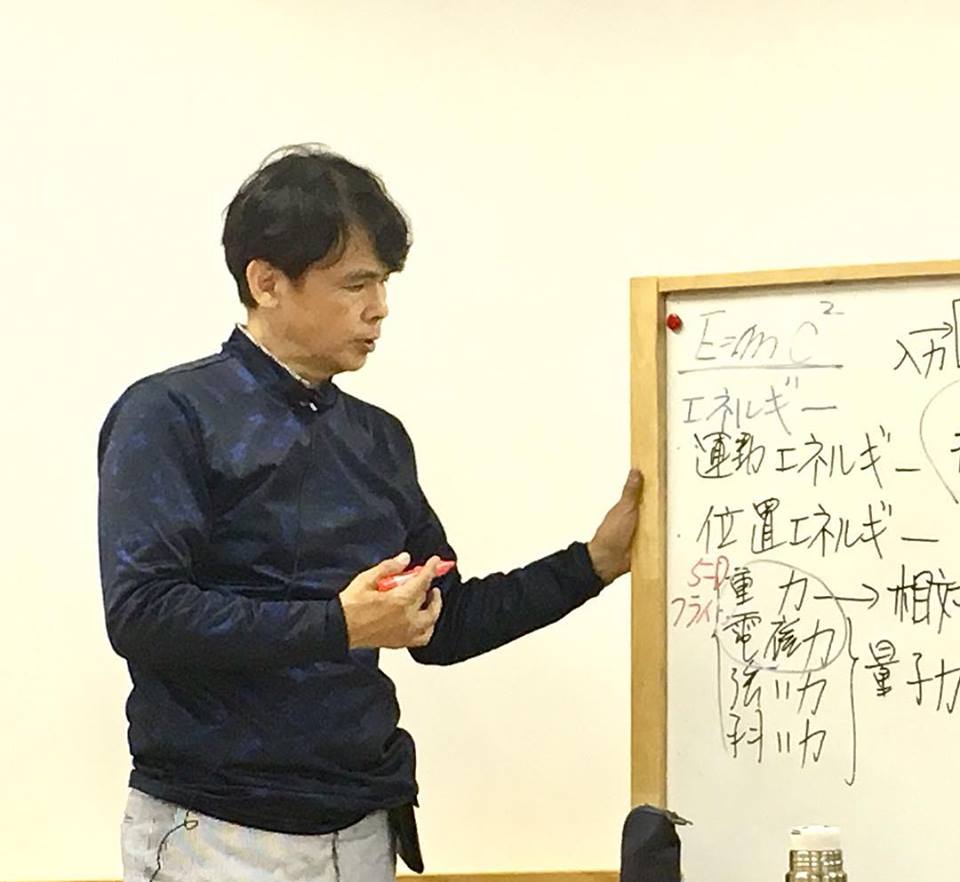 E=mc²
入力
エネルギー
運動エネルギー
位置エネルギー
5=D
フライト
重 力 → 相対
電磁力
強い力
量子力